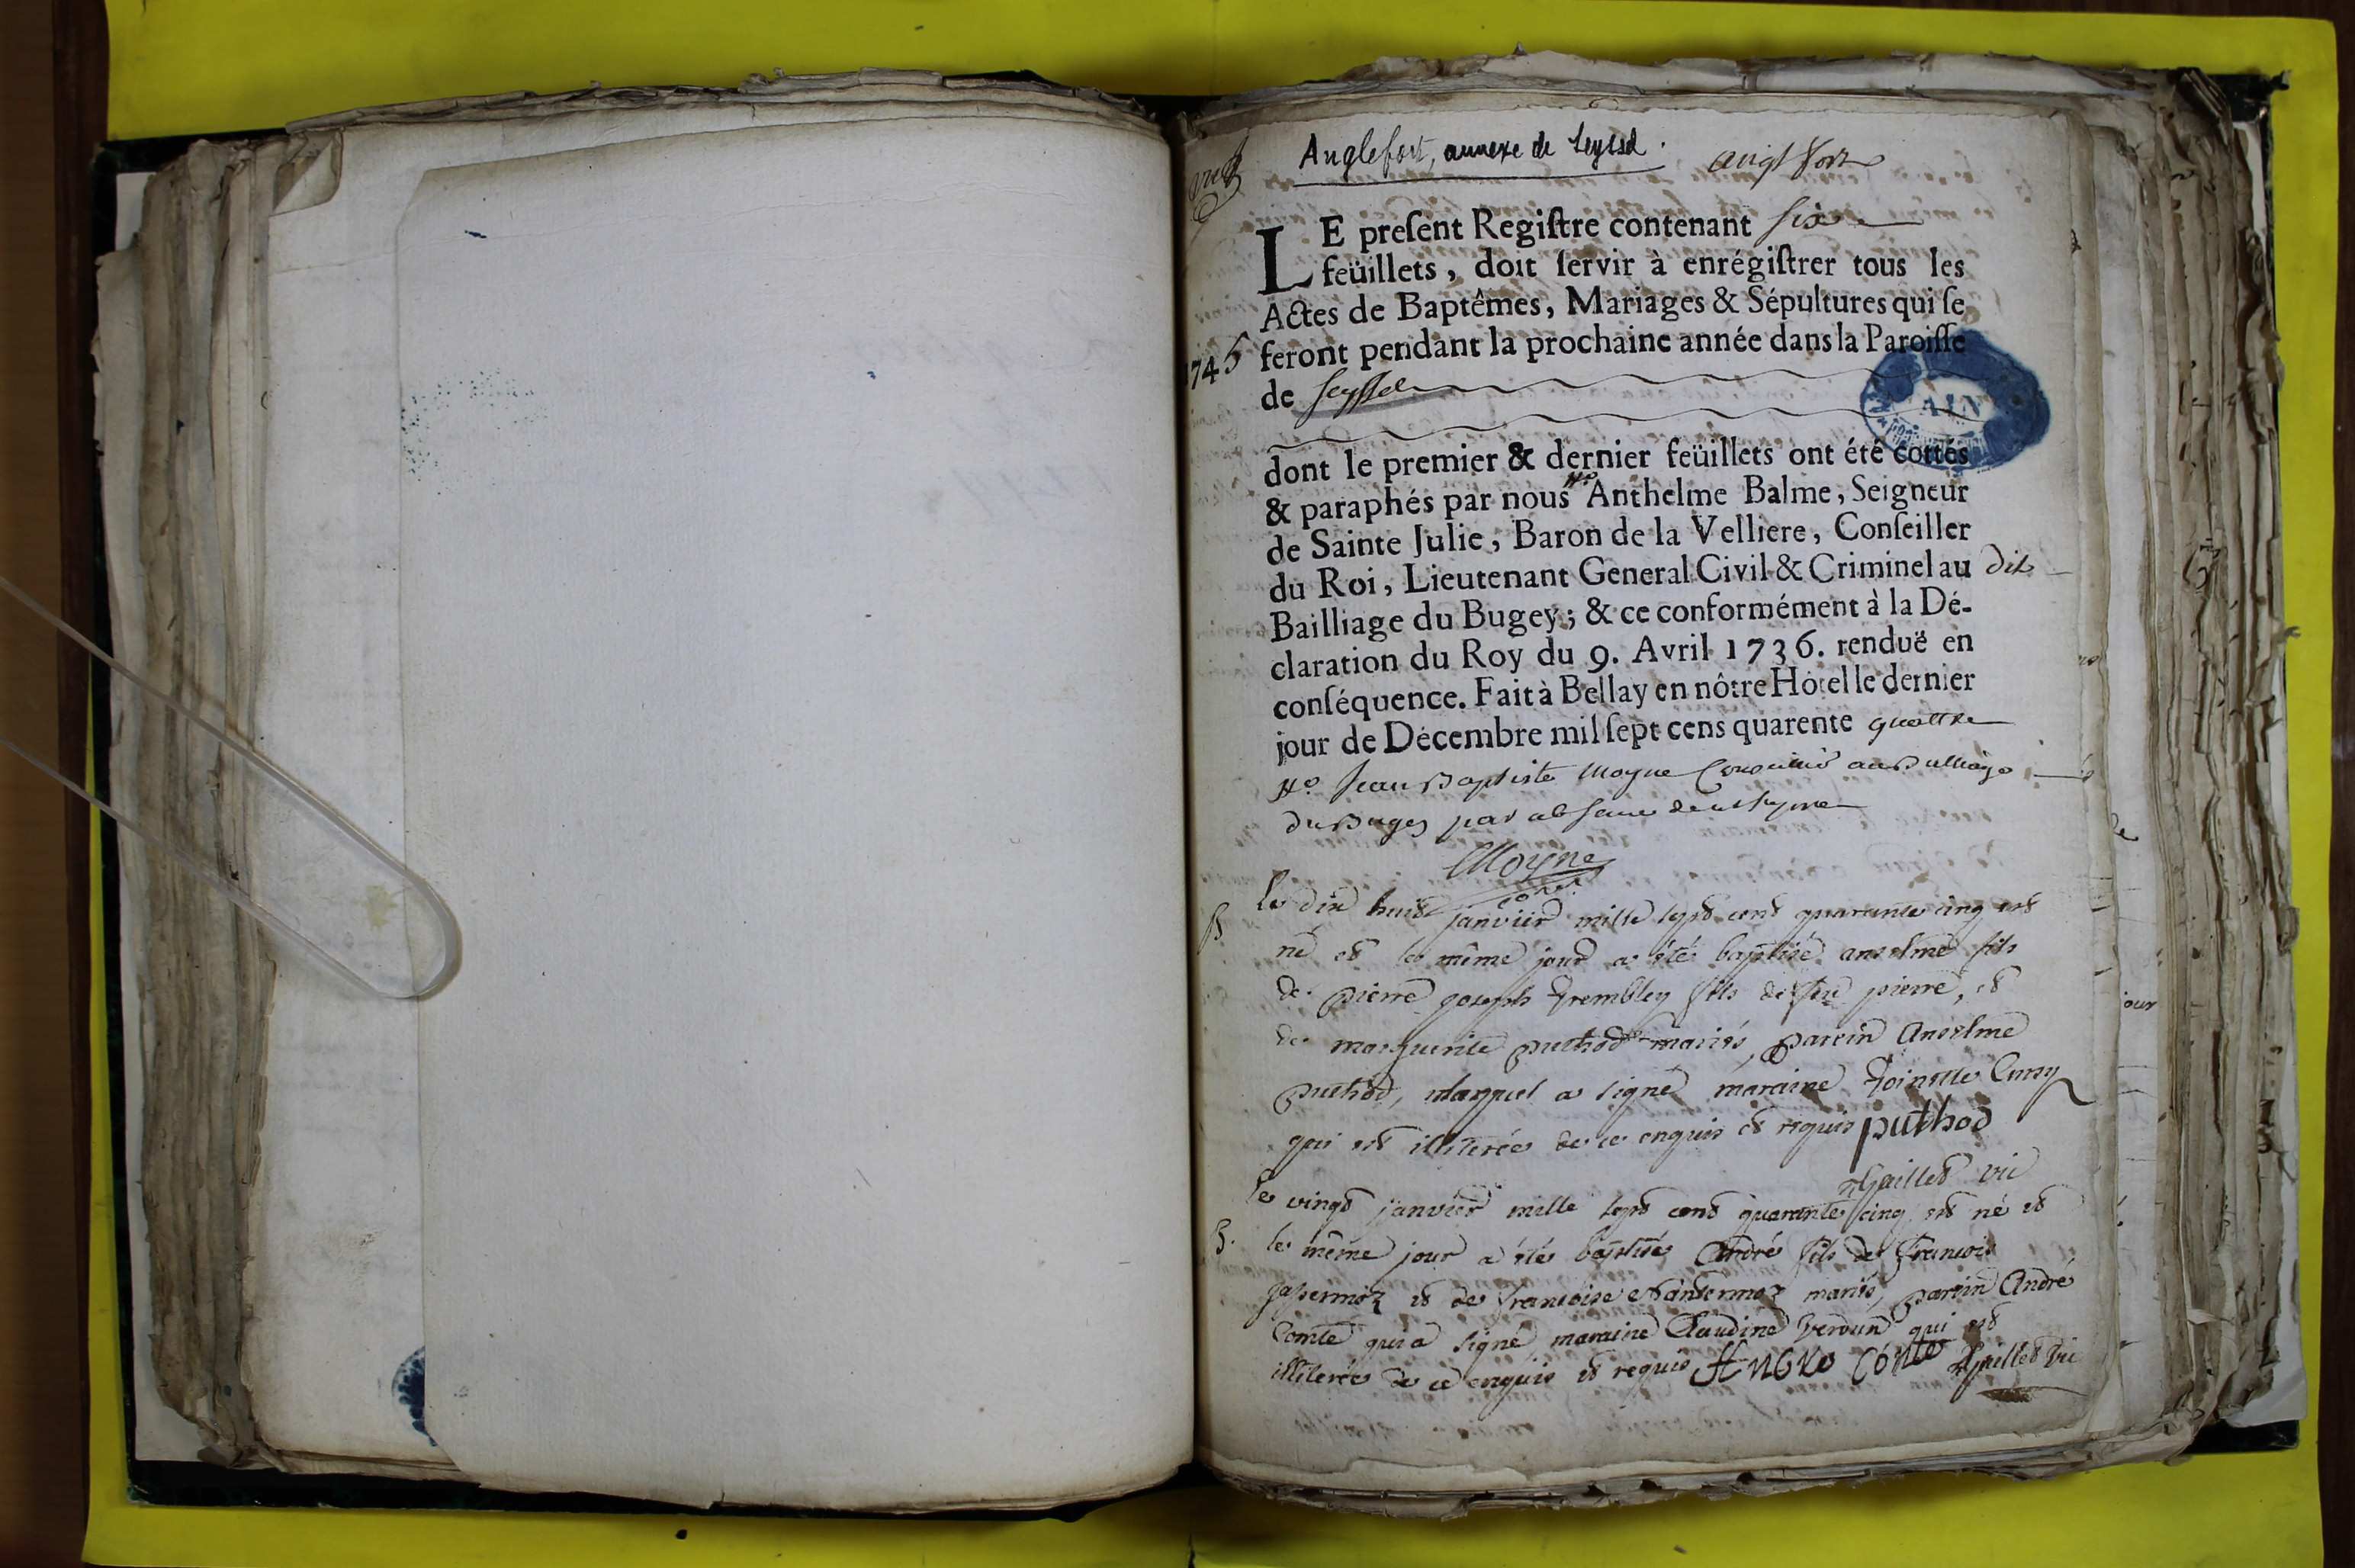 Anglefort, annexe de Seyssel.
anglefort
LE preſent Regiſtre contenant six
feüillets, doit ſervir à enrégiſtrer tous les
Actes de Baptêmes, Mariages & Sépultures qui ſe
1745
feront pendant la prochaine année dans la Paroiſſe
de seyssel
AIN
dont le premier & dernier feüillets ont été cottés
& paraphés par nous Anthelme Balme, Seigneur
de Sainte Julie, Baron de la Velliere, Conſeiller
du Roi, Lieutenant General Civil & Criminel au dit
Bailliage du Bugey; & ce conformément à la Dé-
claration du Roy du 9. Avril 1736. renduë en
conſéquence. Fait à Bellay en nôtre Hôtel le dernier
jour de Décembre mil ſept cens quarente quattre
Jean Baptiste Moyne Conseiller au Balliage
du Bugey par absence
Moyne
B
Le dix huit janvier mille sept cent quarante cinq est
né et le même jour a été baptisé anselme fils
de pierre joseph trembley fils de feu pierre, et
de marguerite puthod mariés, parein Anselme
puthod, lequel a signé maraine Toinette Cursy
qui est illiterée de ce enquis et requis puthod
Gaillet vic
B.
le vingt janvier mille sept cent quarante cinq, est né et
le même jour a été baptisé André fils de francois
et de francoise mariés, parein André
Comte qui a signé, maraine Claudine Verdun qui est
illiterée de ce enquis et requis Andre Conte Gaillet vic
jour